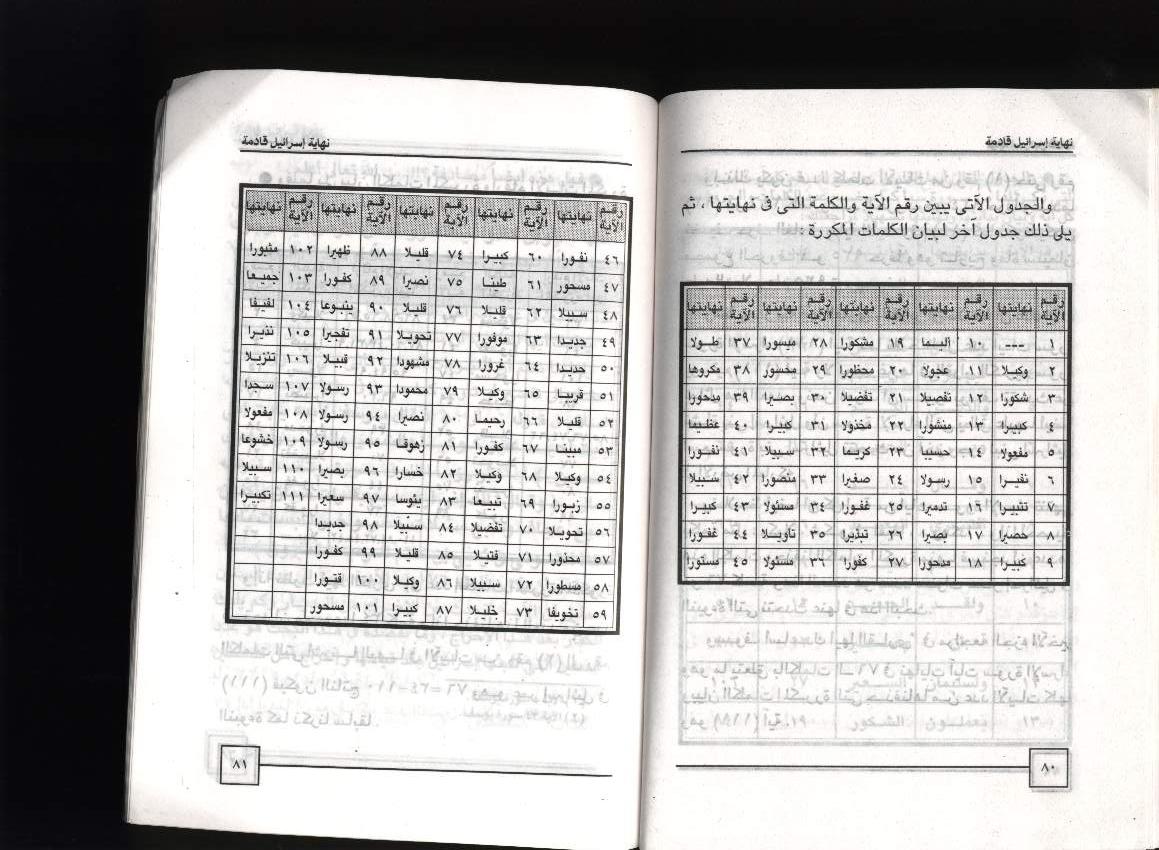 نهاية إسرائيل قادمة
والجدول الآتى يبين رقم الآية والكلمة التى فى نهايتها ، ثم
يلى ذلك جدول آخر لبيان الكلمات المكررة :
رقم الآية نهايتها رقم الآية نهايتها رقم الآية نهايتها رقم الآية نهايتها رقم الآية نهايتها
١ --- ١٠ أليما ١٩ مشكورا ٢٨ ميسورا ٣٧ طولا
٢ وكيلا ١١ عجولا ٢٠ محظورا ٢٩ محسور ٣٨ مكروها
٣ شكورا ١٢ تفصيلا ٢١ تفضيلا ٣٠ بصيرا ٣٩ مدحورا
٤ كبيرا ١٣ منشورا ٢٢ مخذولا ٣١ كبيرا ٤٠ عظيما
٥ مفعولا ١٤ حسيبا ٢٣ كريما ٣٢ سبيلا ٤١ نفورا
٦ نفيرا ١٥ رسولا ٢٤ صغيرا ٣٣ منصورا ٤٢ سبيلا
٧ تتبيرا ١٦ تدميرا ٢٥ غفورا ٣٤ مسئولا ٤٣ كبيرا
٨ حصيرا ١٧ بصيرا ٢٦ تبذيرا ٣٥ تاويلا ٤٤ غفورا
٩ كبيرا ١٨ مدحورا ٢٧ كفورا ٣٦ مسئولا ٤٥ مستورا
٨٠
نهاية إسرائيل قادمة
رقم الآية نهايتها رقم الآية نهايتها رقم الآية نهايتها رقم الآية نهايتها رقم الآية نهايتها
٤٦ نفورا ٦٠ كبيرا ٧٤ قليلا ٨٨ ظهيرا ١٠٢ مثبورا
٤٧ مسحور ٦١ طينا ٧٥ نصيرا ٨٩ كفورا ١٠٣ جميعا
٤٨ سبيلا ٦٢ قليلا ٧٦ قليلا ٩٠ ينبوعا ١٠٤ لفيفا
٤٩ جديدا ٦٣ موفورا ٧٧ تحويلا ٩١ تفجيرا ١٠٥ نذيرا
٥٠ حديدا ٦٤ غرورا ٧٨ مشهودا ٩٢ قبيلا ١٠٦ تنزيلا
٥١ قريبا ٦٥ وكيلا ٧٩ محمودا ٩٣ رسولا ١٠٧ سجدا
٥٢ قليلا ٦٦ رحيما ٨٠ نصيرا ٩٤ رسولا ١٠٨ مفعولا
٥٣ مبينا ٦٧ كفورا ٨١ زهوقا ٩٥ رسولا ١٠٩ خشوعا
٥٤ وكيلا ٦٨ وكيلا ٨٢ خسارا ٩٦ بصيرا ١١٠ سبيلا
٥٥ زبورا ٦٩ تبيعا ٨٣ يئوسا ٩٧ سعيرا ١١١ تكبيرا
٥٦ تحويلا ٧٠ تفضيلا ٨٤ سبيلا ٩٨ جديدا
٥٧ محذورا ٧١ فتيلا ٨٥ قليلا ٩٩ كفورا
٥٨ مسطورا ٧٢ سبيلا ٨٦ وكيلا ١٠٠ قتورا
٥٩ تخويفا ٧٣ خليلا ٨٧ كبيرا ١٠١ مسحور
٨١